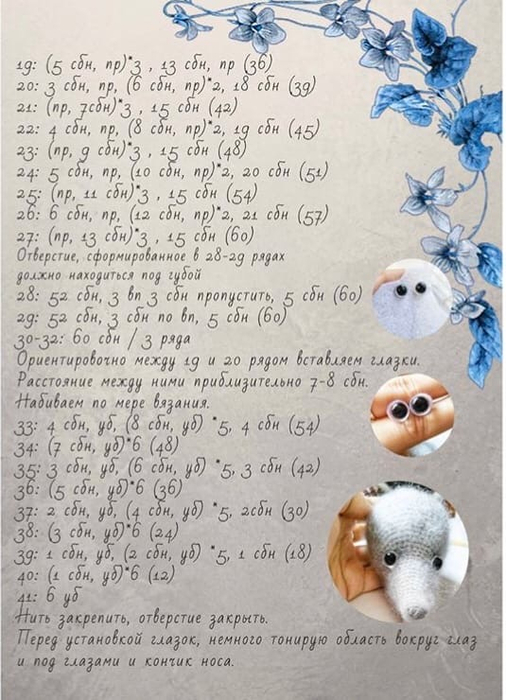 19: (5 сбн, пр)*3 , 13 сбн, пр (36)
20: 3 сбн, пр, (6 сбн, пр)*2, 18 сбн (39)
21: (пр, 7сбн)*3 , 15 сбн (42)
22: 4 сбн, пр, (8 сбн, пр)*2, 19 сбн (45)
23: (пр, 9 сбн)*3 , 15 сбн (48)
24: 5 сбн, пр, (10 сбн, пр)*2, 20 сбн (51)
25: (пр, 11 сбн)*3 , 15 сбн (54)
26: 6 сбн, пр, (12 сбн, пр)*2, 21 сбн (57)
27: (пр, 13 сбн)*3 , 15 сбн (60)
Отверстие, сформированное в 28-29 рядах
должно находиться под губой
28: 52 сбн, 3 вп 3 сбн пропустить, 5 сбн (60)
29: 52 сбн, 3 сбн по вп, 5 сбн (60)
30-32: 60 сбн / 3 ряда
Ориентировочно между 19 и 20 рядом вставляем глазки.
Расстояние между ними приблизительно 7-8 сбн.
Набиваем по мере вязания.
33: 4 сбн, уб, (8 сбн, уб) *5, 4 сбн (54)
34: (7 сбн, уб)*6 (48)
35: 3 сбн, уб, (6 сбн, уб) *5, 3 сбн (42)
36: (5 сбн, уб)*6 (36)
37: 2 сбн, уб, (4 сбн, уб) *5, 2сбн (30)
38: (3 сбн, уб)*6 (24)
39: 1 сбн, уб, (2 сбн, уб) *5, 1 сбн (18)
40: (1 сбн, уб)*6 (12)
41: 6 уб
Нить закрепить, отверстие закрыть.
Перед установкой глазок, немного тонирую область вокруг глаз
и под глазами и кончик носа.